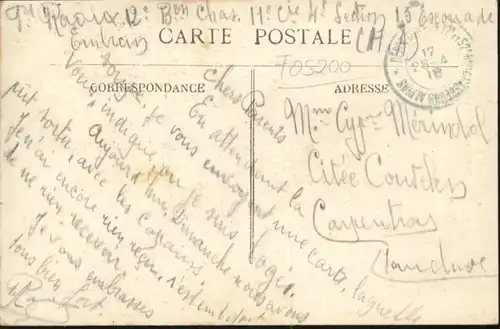 Raoux 12e Bon Chas. 11e Cie 4e Section 15 Escouade
Embrun (H.A)
CARTE POSTALE
705200
17
28-4
18
CORRESPONDANCE
ADRESSE
Chers Parents
En attendant la
longue, je vous envoie une carte, laquelle
vous indique ou je suis loger.
Aujourd'hui Dimanche nous avons
put sortir, avec les copains.
J'en ai encore rien reçu, c'est embêtant
de ne rien recevoir
Je vous embrasse
tous bien fort
Mme Cypn Mérindol
Citée
Carpentras
Vaucluse